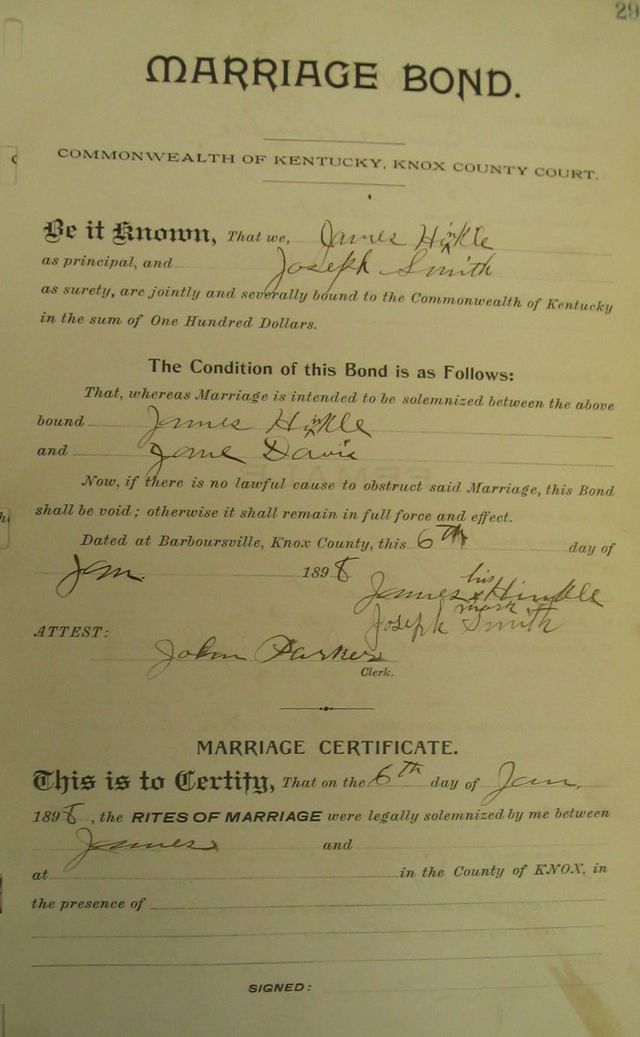 29
MARRIAGE BOND.
COMMONWEALTH OF KENTUCKY, KNOX COUNTY COURT.
Be it Known, That we, James Hinkle
as principal, and Joseph Smith
as surety, are jointly and severally bound to the Commonwealth of Kentucky
in the sum of One Hundred Dollars.
The Condition of this Bond is as Follows:
That, whereas Marriage is intended to be solemnized between the above
bound James Hinkle
and Jane Davis
Now, if there is no lawful cause to obstruct said Marriage, this Bond
shall be void; otherwise it shall remain in full force and effect.
Dated at Barboursville, Knox County, this 6th day of
Jan. 1898
James his x mark Hinkle
Joseph Smith
ATTEST:
John Parker
Clerk.
MARRIAGE CERTIFICATE.
This is to Certify, That on the 6th day of Jan.
1898, the RITES OF MARRIAGE were legally solemnized by me between
James and
at in the County of KNOX, in
the presence of
SIGNED: